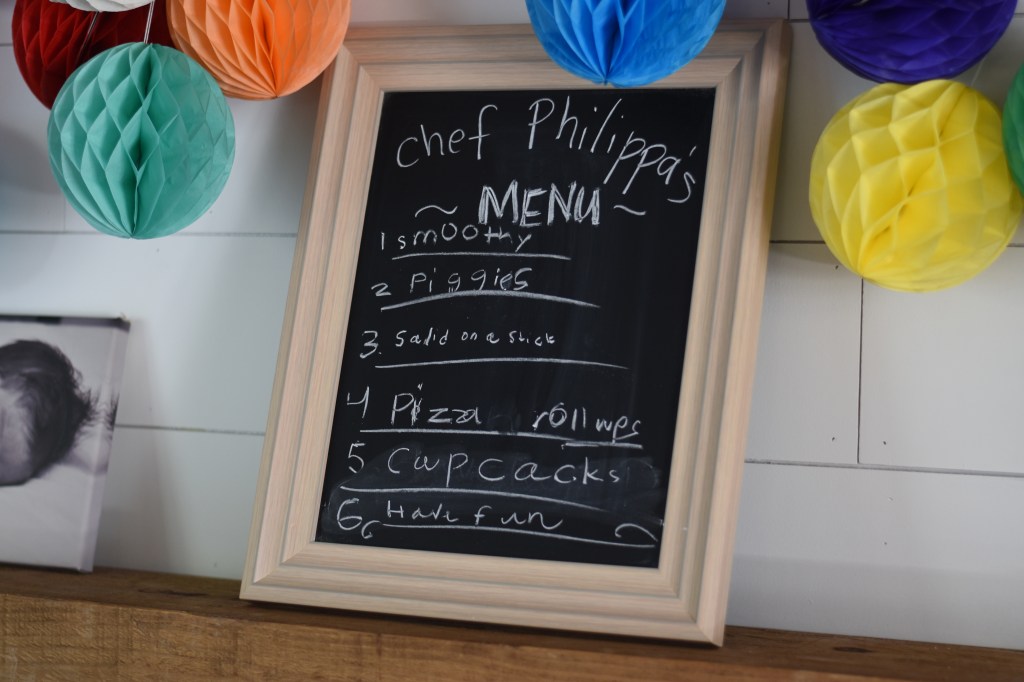 chef Philippa's
~ MENU ~
1 smOothy
2 PiggieS
3. Salid on a stick
4 Pizza rollups
5 cupcacks
6 Have fun